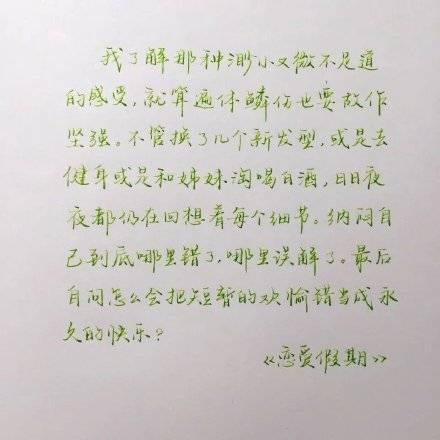 我了解那种渺小又微不足道
的感受，就算遍体鳞伤也要故作
坚强。不管换了几个新发型，或是去
健身或是和姊妹淘喝白酒，日日夜
夜都仍在回想着每个细节。纳闷自
己到底哪里错了，哪里误解了。最后
自问怎么会把短暂的欢愉错当成永
久的快乐？
《恋爱假期》